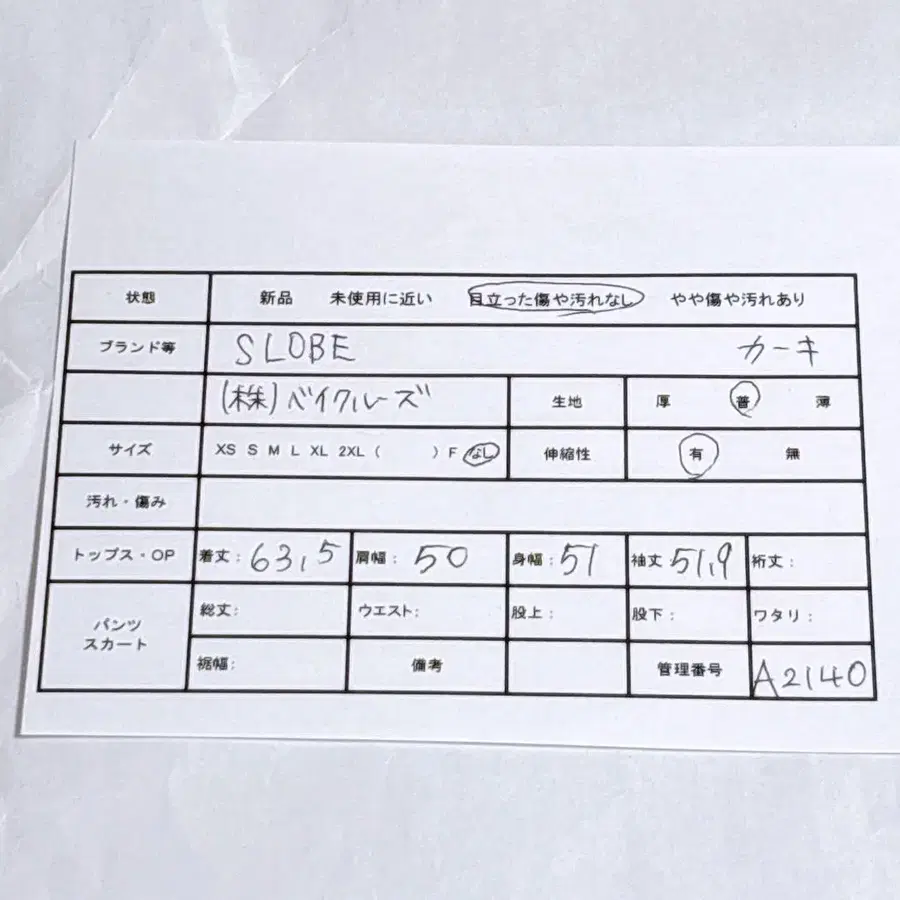 状態 新品 未使用に近い 目立った傷や汚れなし やや傷や汚れあり
ブランド等 SLOBE カーキ
(株)ベイクルーズ 生地 厚 普 薄
サイズ XS S M L XL 2XL ( ) F なし 伸縮性 有 無
汚れ・傷み
トップス・OP 着丈: 63,5 肩幅: 50 身幅: 51 袖丈 51,9 裄丈:
パンツ スカート 総丈: ウエスト: 股上: 股下: ワタリ:
裾幅: 備考 管理番号 A2140